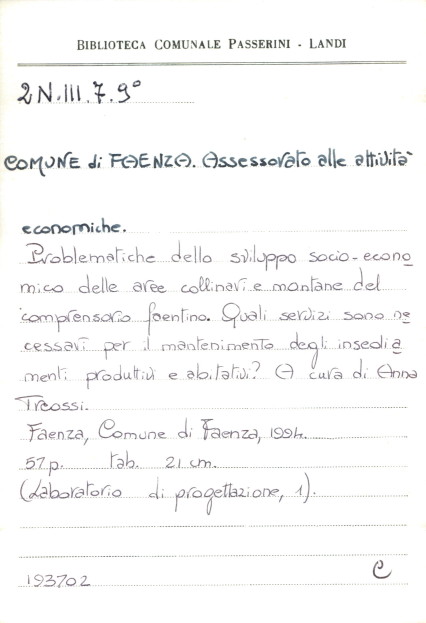 BIBLIOTECA COMUNALE PASSERINI - LANDI
2N.III.7.9°
COMUNE di FAENZA. Assessorato alle attività
economiche.
Problematiche dello sviluppo socio-econo
mico delle aree collinari e montane del
comprensorio faentino. Quali servizi sono ne
cessari per il mantenimento degli insedia
menti produttivi e abitativi? A cura di Anna
Treossi.
Faenza, Comune di Faenza, 1994.
57p. tab. 21 cm.
(Laboratorio di progettazione, 1).
193702
C